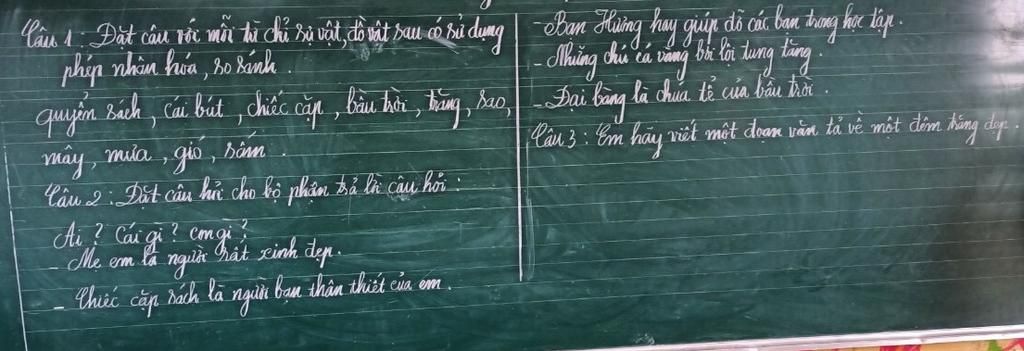 Câu 1: Đặt câu với mỗi từ chỉ sự vật, đồ vật sau có sử dụng
phép nhân hóa, so sánh.
quyển sách, cái bút, chiếc cặp, bầu trời, trăng, sao,
mây, mưa, gió, sấm.
Câu 2: Đặt câu hỏi cho bộ phận trả lời câu hỏi:
Ai? Cái gì? con gì?
- Mẹ em là người rất xinh đẹp.
- Chiếc cặp sách là người bạn thân thiết của em.
- Bạn Hương hay giúp đỡ các bạn trong học tập.
- Những chú cá vàng bơi lội tung tăng.
- Đại bàng là chúa tể của bầu trời.
Câu 3: Em hãy viết một đoạn văn tả về một đêm trăng đẹp.